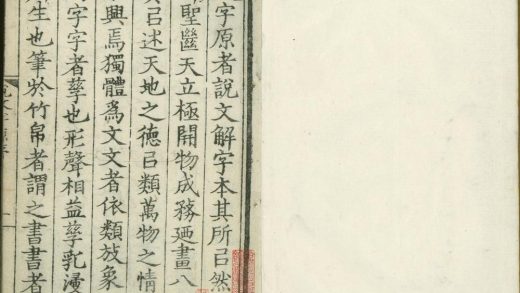 字原者說文解字本其所㠯然
聖㘙天立極開物成務廼畫八
㠯述天地之德㠯類萬物之情
興焉獨體為文文者依類放象
字字者孳也形聲相益孳乳浸
生也筆於竹帛者謂之書書者